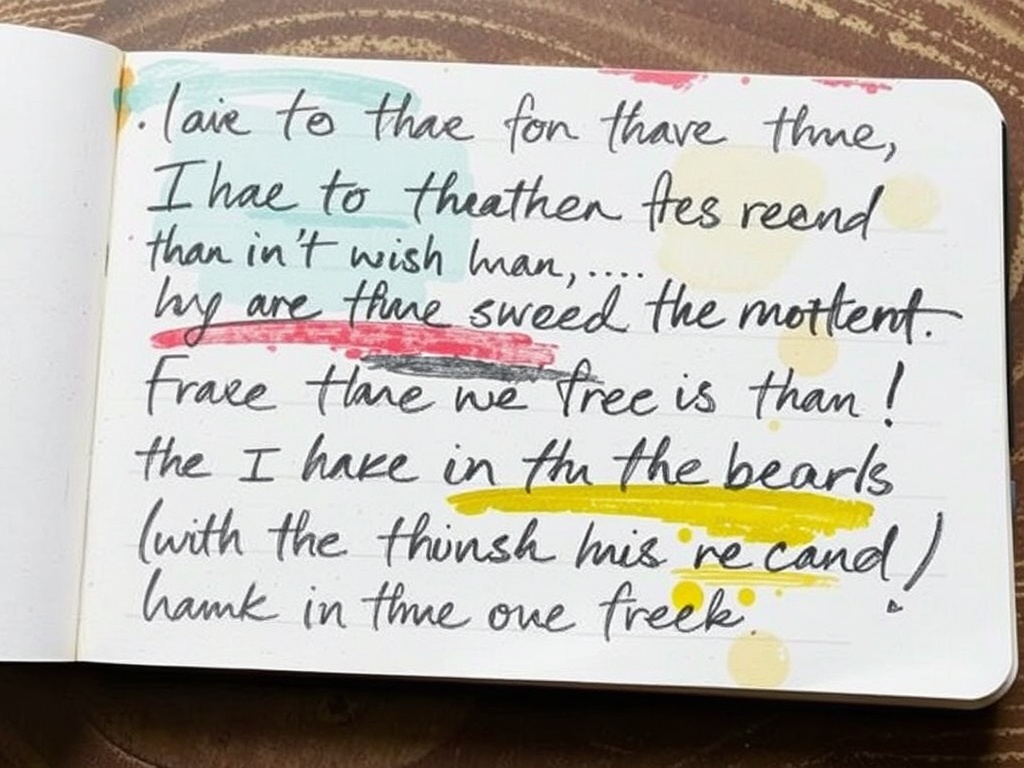 laie to thae fon thave thne,
I hae to theathen fes reend
than in't wish man,....
hry are thne sweed the mottent.
Fraee thane we free is than!
the I hake in thu the bearls
(with the thinsh hnis re cand!
hamk in thne one freek.